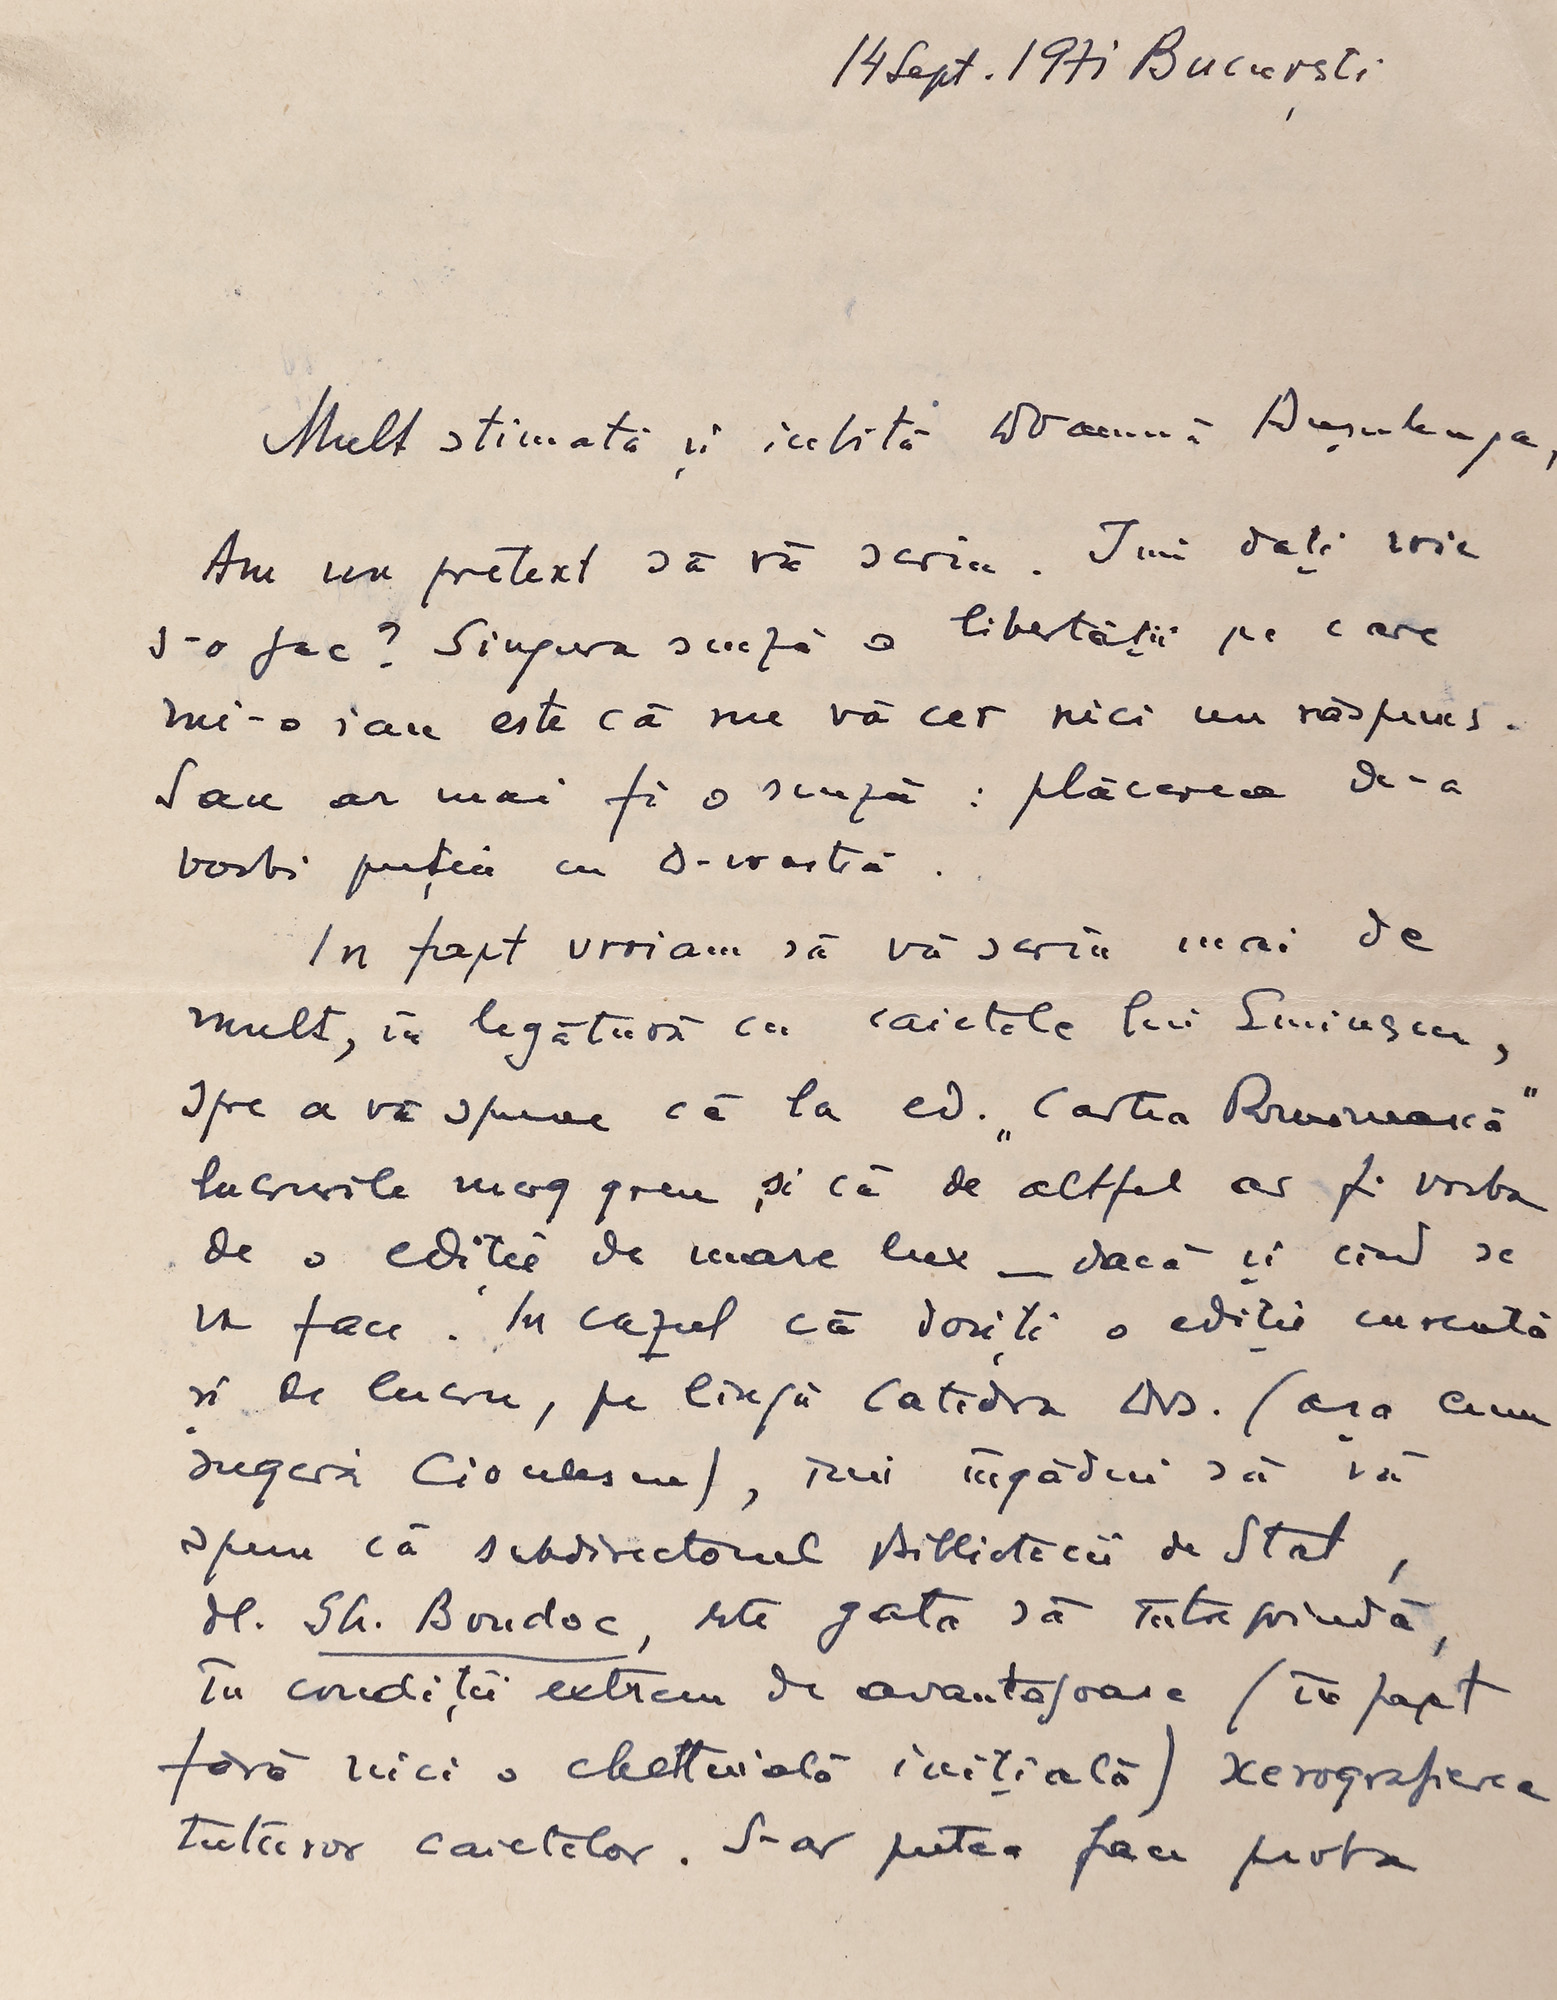 14 Sept. 1971 București
Mult stimată și iubită Doamnă Dușulunga,
Am un pretext să vă scriu. Imi dați voie
s-o fac? Singura scuză a libertății pe care
mi-o iau este că nu vă cer nici un răspuns.
Sau ar mai fi o scuză : plăcerea de-a
vorbi puțin cu D-voastră.
In fapt vroiam să vă scriu mai de
mult, în legătură cu caietele lui Eminescu,
spre a vă spune că la ed. „Cartea Românească"
lucrurile merg greu și că de altfel ar fi vorba
de o ediție de mare lux — dacă și cînd se
va face. In cazul că doriți o ediție curentă
și de lucru, pe lîngă Catedra Dvs. (așa cum
sugera Cioculescu), îmi îngădui să vă
spun că subdirectorul Bibliotecii de Stat,
dl. Gh. Bondoc, este gata să întreprindă,
în condiții extrem de avantajoase (în fapt
fără nici o cheltuială inițială) xerografierea
tuturor caietelor. S-ar putea face proba